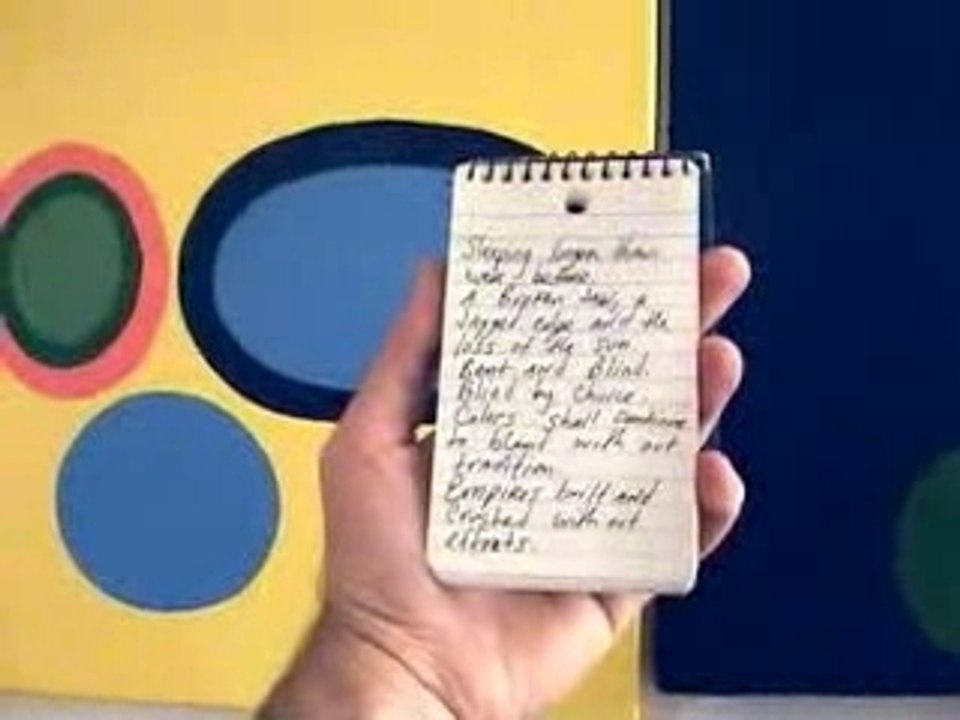 Sleeping longer than
ever before.
A
Jagged edge and the
loss of the sun.
Bent and Blind.
Blind by Choice.
Colors shall continue
to blend with out
tradition.
Empires built and
Crushed with out
efforts.